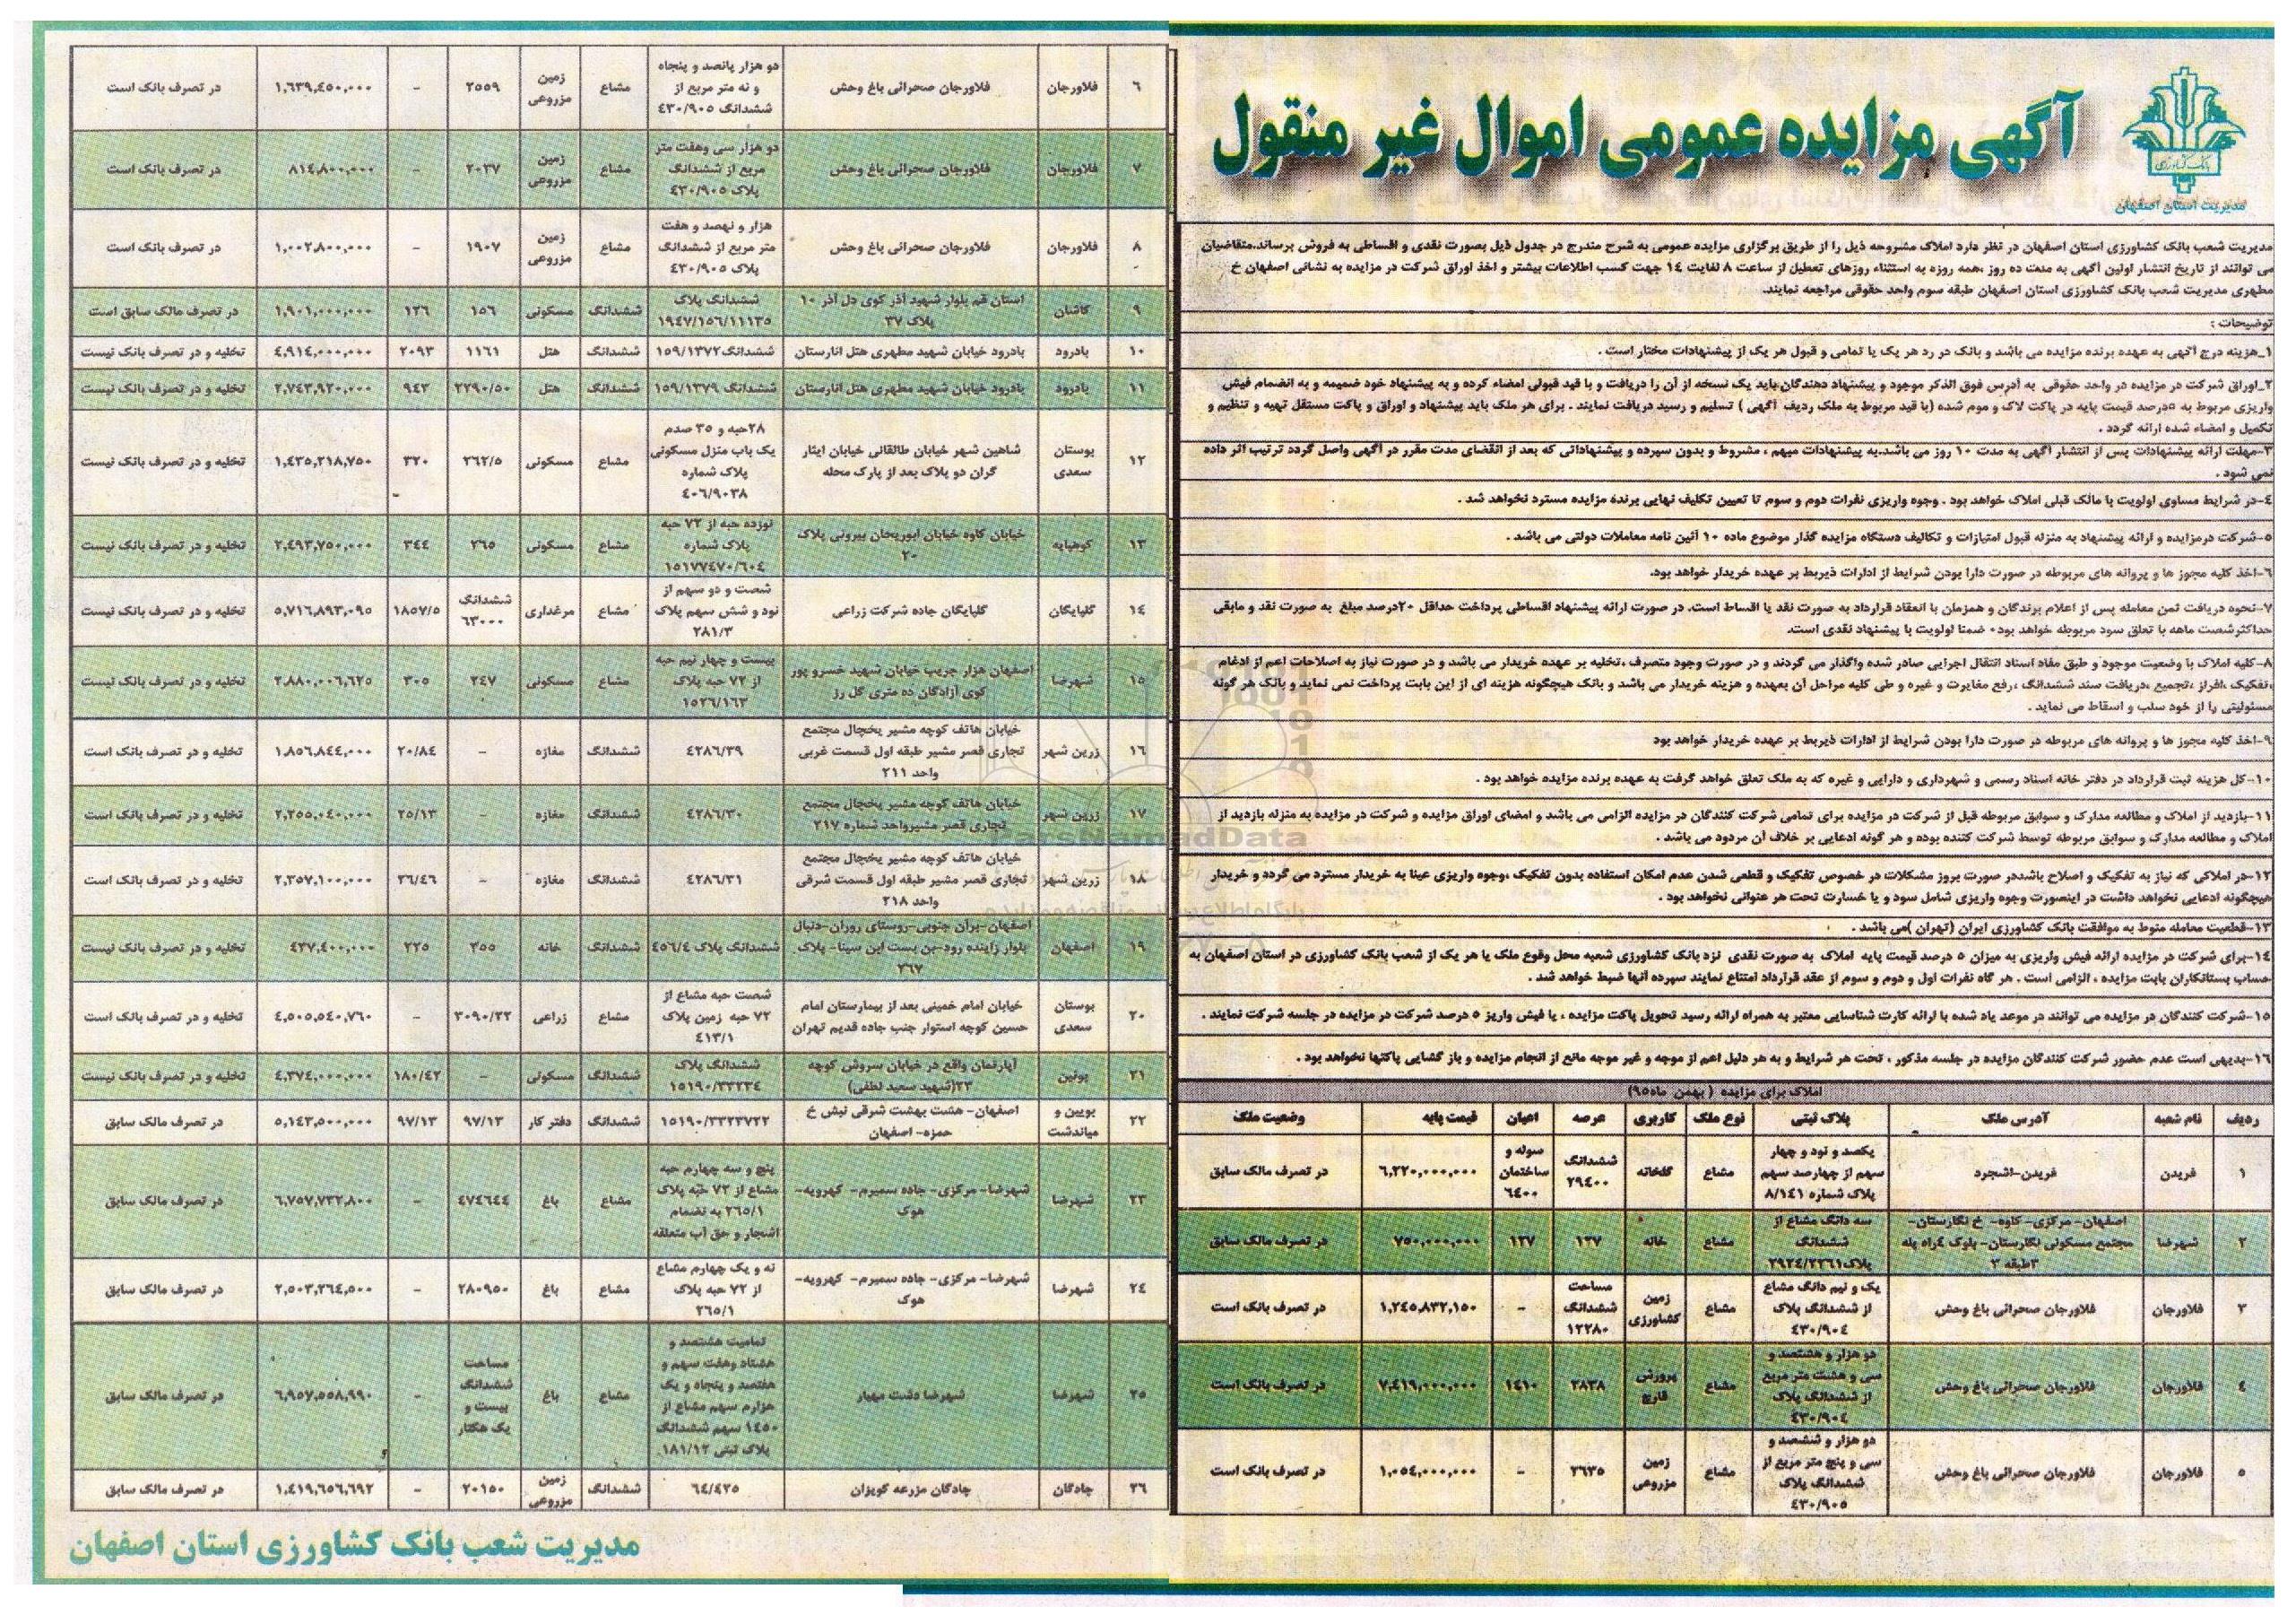 آگهی مزایده عمومی اموال غیر منقول
بانک کشاورزی
مدیریت استان اصفهان
مدیریت شعب بانک کشاورزی استان اصفهان در نظر دارد املاک مشروحه ذیل را از طریق برگزاری مزایده عمومی به شرح مندرج در جدول ذیل بصورت نقدی و اقساطی به فروش برساند.متقاضیان
می توانند از تاریخ انتشار اولین آگهی به مدت ده روز ،همه روزه به استثناء روزهای تعطیل از ساعت ۸ لغایت ۱٤ جهت کسب اطلاعات بیشتر و اخذ اوراق شرکت در مزایده به نشانی اصفهان خ
مطهری مدیریت شعب بانک کشاورزی استان اصفهان طبقه سوم واحد حقوقی مراجعه نمایند.
توضیحات :
۱_هزینه درج آگهی به عهده برنده مزایده می باشد و بانک در رد هر یک یا تمامی و قبول هر یک از پیشنهادات مختار است .
۲_اوراق شرکت در مزایده در واحد حقوقی به آدرس فوق الذکر موجود و پیشنهاد دهندگان باید یک نسخه از آن را دریافت و با قید قبولی امضاء کرده و به پیشنهاد خود ضمیمه و به انضمام فیش
واریزی مربوط به ۵درصد قیمت پایه در پاکت لاک و موم شده (با قید مربوط به ملک ردیف آگهی ) تسلیم و رسید دریافت نمایند . برای هر ملک باید پیشنهاد و اوراق و پاکت مستقل تهیه و تنظیم و
تکمیل و امضاء شده ارائه گردد .
۳-مهلت ارائه پیشنهادات پس از انتشار آگهی به مدت ۱۰ روز می باشد.به پیشنهادات مبهم ، مشروط و بدون سپرده و پیشنهاداتی که بعد از انقضای مدت مقرر در آگهی واصل گردد ترتیب اثر داده
نمی شود .
٤-در شرایط مساوی اولویت با مالک قبلی املاک خواهد بود . وجوه واریزی نفرات دوم و سوم تا تعیین تکلیف نهایی برنده مزایده مسترد نخواهد شد .
۵-شرکت درمزایده و ارائه پیشنهاد به منزله قبول امتیازات و تکالیف دستگاه مزایده گذار موضوع ماده ۱۰ آئین نامه معاملات دولتی می باشد .
۶-اخذ کلیه مجوز ها و پروانه های مربوطه در صورت دارا بودن شرایط از ادارات ذیربط بر عهده خریدار خواهد بود.
۷-نحوه دریافت ثمن معامله پس از اعلام برندگان و همزمان با انعقاد قرارداد به صورت نقد یا اقساط است. در صورت ارائه پیشنهاد اقساطی پرداخت حداقل ۲۰درصد مبلغ به صورت نقد و مابقی
حداکثرشصت ماهه با تعلق سود مربوطه خواهد بود۰ ضمنا اولویت با پیشنهاد نقدی است.
۸-کلیه املاک با وضعیت موجود و طبق مفاد اسناد انتقال اجرایی صادر شده واگذار می گردند و در صورت وجود متصرف ،تخلیه بر عهده خریدار می باشد و در صورت نیاز به اصلاحات اعم از ادغام
،تفکیک ،افراز ،تجمیع ،دریافت سند ششدانگ ،رفع مغایرت و غیره و طی کلیه مراحل آن بعهده و هزینه خریدار می باشد و بانک هیچگونه هزینه ای از این بابت پرداخت نمی نماید و بانک هر گونه
مسئولیتی را از خود سلب و اسقاط می نماید .
۹-اخذ کلیه مجوز ها و پروانه های مربوطه در صورت دارا بودن شرایط از ادارات ذیربط بر عهده خریدار خواهد بود
۱۰-کل هزینه ثبت قرارداد در دفتر خانه اسناد رسمی و شهرداری و دارایی و غیره که به ملک تعلق خواهد گرفت به عهده برنده مزایده خواهد بود .
۱۱-بازدید از املاک و مطالعه مدارک و سوابق مربوطه قبل از شرکت در مزایده برای تمامی شرکت کنندگان در مزایده الزامی می باشد و امضای اوراق مزایده و شرکت در مزایده به منزله بازدید از
املاک و مطالعه مدارک و سوابق مربوطه توسط شرکت کننده بوده و هر گونه ادعایی بر خلاف آن مردود می باشد .
۱۲-در املاکی که نیاز به تفکیک و اصلاح باشددر صورت بروز مشکلات در خصوص تفکیک و قطعی شدن عدم امکان استفاده بدون تفکیک ،وجوه واریزی عینا به خریدار مسترد می گردد و خریدار
هیچگونه ادعایی نخواهد داشت در اینصورت وجوه واریزی شامل سود و یا خسارت تحت هر عنوانی نخواهد بود .
۱۳-قطعیت معامله منوط به موافقت بانک کشاورزی ایران (تهران )می باشد .
۱٤-برای شرکت در مزایده ارائه فیش واریزی به میزان ۵ درصد قیمت پایه املاک به صورت نقدی نزد بانک کشاورزی شعبه محل وقوع ملک یا هر یک از شعب بانک کشاورزی در استان اصفهان به
حساب بستانکاران بابت مزایده ، الزامی است . هر گاه نفرات اول و دوم و سوم از عقد قرارداد امتناع نمایند سپرده آنها ضبط خواهد شد .
۱۵-شرکت کنندگان در مزایده می توانند در موعد یاد شده با ارائه کارت شناسایی معتبر به همراه ارائه رسید تحویل پاکت مزایده ، یا فیش واریز ۵ درصد شرکت در مزایده در جلسه شرکت نمایند .
۱۶-بدیهی است عدم حضور شرکت کنندگان مزایده در جلسه مذکور ، تحت هر شرایط و به هر دلیل اعم از موجه و غیر موجه مانع از انجام مزایده و باز گشایی پاکتها نخواهد بود .
املاک برای مزایده ( بهمن ماه۹۵)
ردیف نام شعبه آدرس ملک پلاک ثبتی نوع ملک کاربری عرصه اعیان قیمت پایه وضعیت ملک
۱ فریدن فریدن-اشجرد یکصد و نود و چهار سهم از چهارصد سهم پلاک شماره ۸/۱٤۱ مشاع گلخانه ششدانگ ۲۹٤۰۰ سوله و ساختمان ۶٤۰۰ ۶,۲۲۰,۰۰۰,۰۰۰ در تصرف مالک سابق
۲ شهرضا اصفهان- مرکزی- کاوه- خ نگارستان- مجتمع مسکونی نگارستان- بلوک ٤راه پله ۳طبقه ۳ سه دانگ مشاع از ششدانگ پلاک۲۹۲٤/۲۲۶۱ مشاع خانه ۱۲۷ ۱۲۷ ۷۵۰,۰۰۰,۰۰۰ در تصرف مالک سابق
۳ فلاورجان فلاورجان صحرائی باغ وحش یک و نیم دانگ مشاع از ششدانگ پلاک ٤۳۰/۹۰٤ مشاع زمین کشاورزی مساحت ششدانگ ۱۲۲۸۰ - ۱,۲٤۵,۸۳۲,۱۵۰ در تصرف بانک است
٤ فلاورجان فلاورجان صحرائی باغ وحش دو هزار و هشتصد و سی و هشت متر مربع از ششدانگ پلاک ٤۳۰/۹۰٤ مشاع پرورش قارچ ۲۸۳۸ ۱٤۱۰ ۷,٤۱۹,۰۰۰,۰۰۰ در تصرف بانک است
۵ فلاورجان فلاورجان صحرائی باغ وحش دو هزار و ششصد و سی و پنج متر مربع از ششدانگ پلاک ٤۳۰/۹۰۵ مشاع زمین مزروعی ۲۶۳۵ - ۱,۰۵٤,۰۰۰,۰۰۰ در تصرف بانک است
۶ فلاورجان فلاورجان صحرائی باغ وحش دو هزار پانصد و پنجاه و نه متر مربع از ششدانگ ٤۳۰/۹۰۵ مشاع زمین مزروعی ۲۵۵۹ - ۱,۶۳۹,٤۵۰,۰۰۰ در تصرف بانک است
۷ فلاورجان فلاورجان صحرائی باغ وحش دو هزار سی وهفت متر مربع از ششدانگ پلاک ٤۳۰/۹۰۵ مشاع زمین مزروعی ۲۰۳۷ - ۸۱٤,۸۰۰,۰۰۰ در تصرف بانک است
۸ فلاورجان فلاورجان صحرائی باغ وحش هزار و نهصد و هفت متر مربع از ششدانگ پلاک ٤۳۰/۹۰۵ مشاع زمین مزروعی ۱۹۰۷ - ۱,۰۰۲,۸۰۰,۰۰۰ در تصرف بانک است
۹ کاشان استان قم بلوار شهید آذر کوی دل آذر ۱۰ پلاک ۳۷ ششدانگ پلاک ۱۹٤۷/۱۵۶/۱۱۱۳۵ ششدانگ مسکونی ۱۵۶ ۱۳۶ ۱,۹۰۱,۰۰۰,۰۰۰ در تصرف مالک سابق است
۱۰ بادرود بادرود خیابان شهید مطهری هتل انارستان ششدانگ۱۵۹/۱۳۷۲ ششدانگ هتل ۱۱۶۱ ۲۰۹۳ ٤,۹۱٤,۰۰۰,۰۰۰ تخلیه و در تصرف بانک نیست
۱۱ بادرود بادرود خیابان شهید مطهری هتل انارستان ششدانگ ۱۵۹/۱۳۷۹ ششدانگ هتل ۲۲۹۰/۵۰ ۹٤۳ ۲,۷٤۳,۹۲۰,۰۰۰ تخلیه و در تصرف بانک نیست
۱۲ بوستان سعدی شاهین شهر خیابان طالقانی خیابان ایثار گران دو پلاک بعد از پارک محله ۲۸حبه و ۳۵ صدم یک باب منزل مسکونی پلاک شماره ٤۰۶/۹۰۳۸ مشاع مسکونی ۲۶۲/۵ ۳۲۰ ۱,٤۳۵,۲۱۸,۷۵۰ تخلیه و در تصرف بانک نیست
۱۳ کوهپایه خیابان کاوه خیابان ابوریحان بیرونی پلاک ۲۰ نوزده حبه از ۷۲ حبه پلاک شماره ۱۵۱۷۷٤۷۰/۶۰٤ مشاع مسکونی ۲۶۵ ۳٤٤ ۲,٤۹۳,۷۵۰,۰۰۰ تخلیه و در تصرف بانک نیست
۱٤ گلپایگان گلپایگان جاده شرکت زراعی شصت و دو سهم از نود و شش سهم پلاک ۲۸۱/۳ مشاع مرغداری ششدانگ ۶۳۰۰۰ ۱۸۵۷/۵ ۵,۷۱۶,۸۹۳,۰۹۵ تخلیه و در تصرف بانک نیست
۱۵ شهرضا اصفهان هزار جریب خیابان شهید خسرو پور کوی آزادگان ده متری گل رز بیست و چهار نیم حبه از ۷۲ حبه پلاک ۱۵۲۶/۱۶۳ مشاع مسکونی ۲٤۷ ۳۰۵ ۲,۸۸۰,۰۰۶,۶۲۵ تخلیه و در تصرف بانک نیست
۱۶ زرین شهر خیابان هاتف کوچه مشیر یخچال مجتمع تجاری قصر مشیر طبقه اول قسمت غربی واحد ۲۱۱ ٤۲۸۶/۳۹ ششدانگ مغازه - ۲۰/۸٤ ۱,۸۵۶,۸٤٤,۰۰۰ تخلیه و در تصرف بانک است
۱۷ زرین شهر خیابان هاتف کوچه مشیر یخچال مجتمع تجاری قصر مشیرواحد شماره ۲۱۷ ٤۲۸۶/۳۰ ششدانگ مغازه - ۲۵/۱۳ ۲,۲۵۵,۰٤۰,۰۰۰ تخلیه و در تصرف بانک است
۱۸ زرین شهر خیابان هاتف کوچه مشیر یخچال مجتمع تجاری قصر مشیر طبقه اول قسمت شرقی واحد ۲۱۸ ٤۲۸۶/۳۱ ششدانگ مغازه - ۲۶/٤۶ ۲,۳۵۷,۱۰۰,۰۰۰ تخلیه و در تصرف بانک است
۱۹ اصفهان اصفهان-برآن جنوبی-روستای روران-دنبال بلوار زاینده رود-بن بست ابن سینا- پلاک ۳۶۷ ششدانگ پلاک ٤۵۶/٤ ششدانگ خانه ۳۵۵ ۲۲۵ ٤۳۷,٤۰۰,۰۰۰ تخلیه و در تصرف بانک نیست
۲۰ بوستان سعدی خیابان امام خمینی بعد از بیمارستان امام حسین کوچه استوار جنب جاده قدیم تهران شصت حبه مشاع از ۷۲ حبه زمین پلاک ٤۱۳/۱ مشاع زراعی ۳۰۹۰/۲۲ - ٤,۵۰۵,۵٤۰,۷۶۰ تخلیه و در تصرف بانک است
۲۱ بوئین آپارتمان واقع در خیابان سروش کوچه ۲۳(شهید سعید لطفی) ششدانگ پلاک ۱۵۱۹۰/۳۳۲۳٤ ششدانگ مسکونی - ۱۸۰/٤۲ ٤,۳۷٤,۰۰۰,۰۰۰ تخلیه و در تصرف بانک نیست
۲۲ بویین و میاندشت اصفهان- هشت بهشت شرقی نبش خ حمزه- اصفهان ۱۵۱۹۰/۳۳۲۳۷۲۲ ششدانگ دفتر کار ۹۷/۱۳ ۹۷/۱۳ ۵,۱٤۳,۵۰۰,۰۰۰ در تصرف مالک سابق
۲۳ شهرضا شهرضا- مرکزی- جاده سمیرم- کهرویه- هوک پنج و سه چهارم حبه مشاع از ۷۲ حبه پلاک ۲۶۵/۱ به انضمام اشجار و حق آب متعلقه مشاع باغ ٤۷٤۶٤٤ - ۶,۷۵۷,۷۳۲,۸۰۰ در تصرف مالک سابق
۲٤ شهرضا شهرضا- مرکزی- جاده سمیرم- کهرویه- هوک نه و یک چهارم مشاع از ۷۲ حبه پلاک ۲۶۵/۱ مشاع باغ ۲۸۰۹۵۰ - ۲,۵۰۳,۲۶٤,۵۰۰ در تصرف مالک سابق
۲۵ شهرضا شهرضا دشت مهیار تمامیت هشتصد و هشتاد وهفت سهم و هفتصد و پنجاه و یک هزارم سهم مشاع از ۱٤۵۰ سهم ششدانگ پلاک ثبتی ۱۸۱/۱۲ مشاع باغ مساحت ششدانگ بیست و یک هکتار - ۶,۹۵۷,۵۵۸,۹۹۰ در تصرف مالک سابق
۲۶ چادگان چادگان مزرعه کویزان ۶٤/٤۲۵ ششدانگ زمین مزروعی ۲۰۱۵۰ - ۱,٤۱۹,۶۵۶,۶۹۲ در تصرف مالک سابق
مدیریت شعب بانک کشاورزی استان اصفهان
ParsNamadData